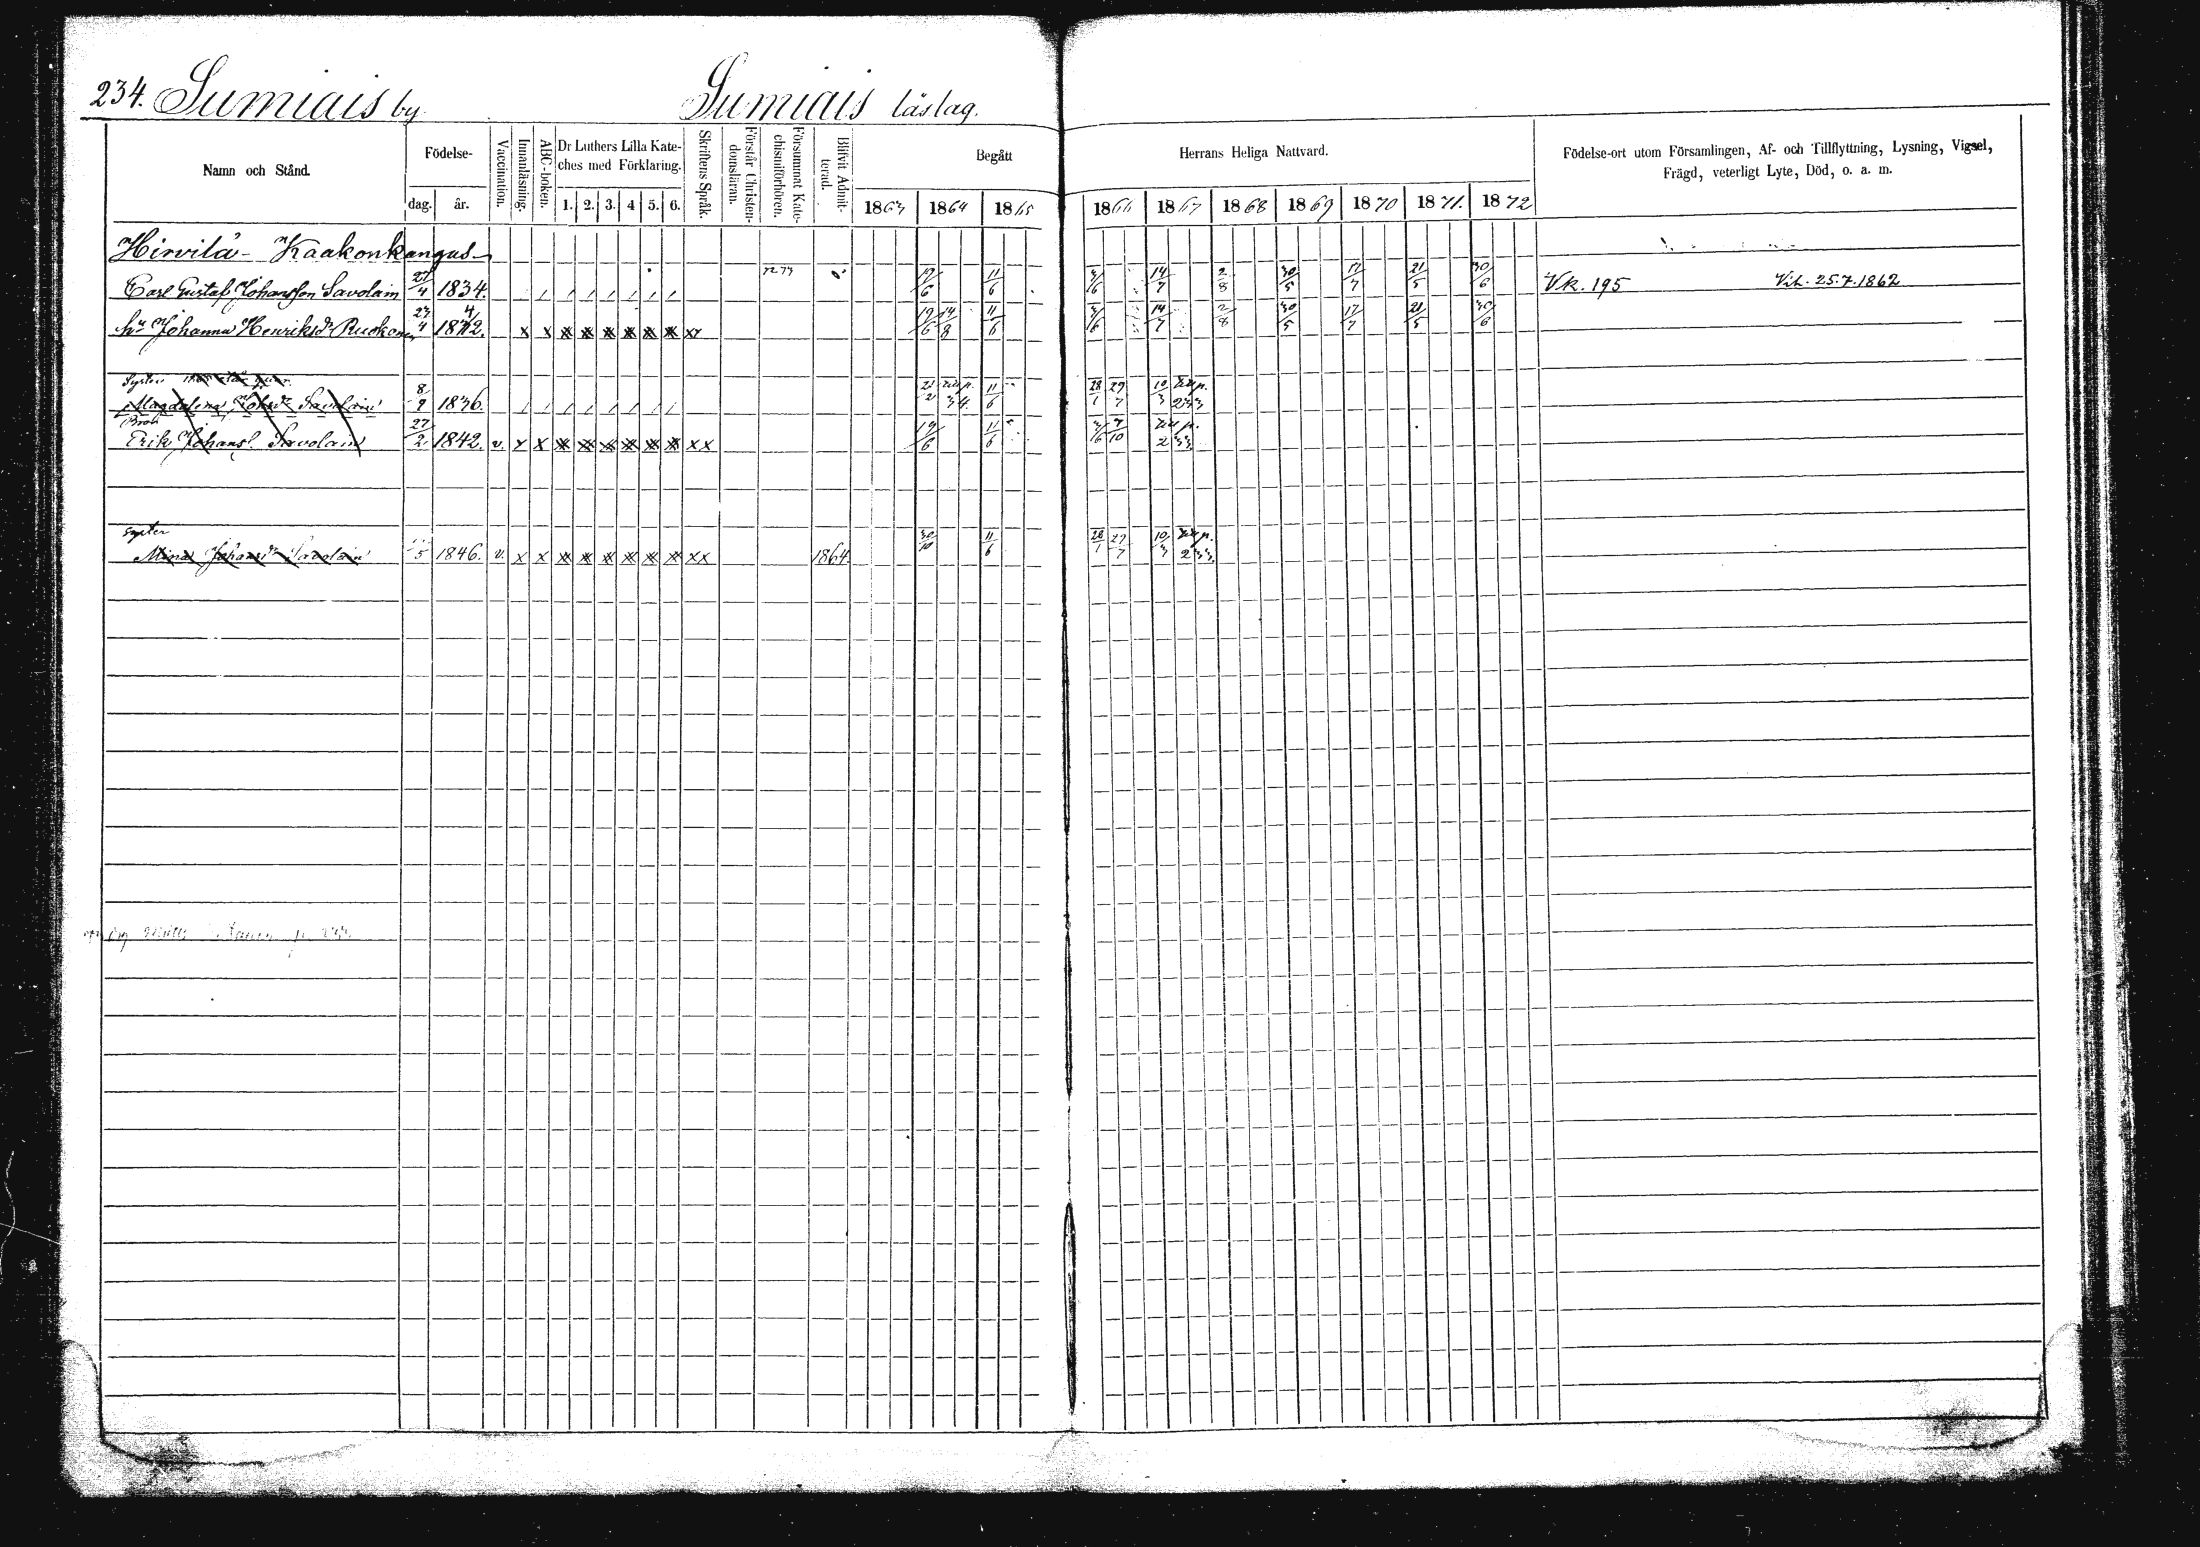 234. Sumiais by Sumiais läslag.
Namn och Stånd.
Födelse-
dag. år.
Vaccination.
Innanläsning.
ABC-boken.
Dr Luthers Lilla Kate-
ches med Förklaring.
1. 2. 3. 4 5. 6.
Skriftens Språk.
Förstår Christen-
domsläran.
Försummat Kate-
chismiförhören.
Blifvit Admit-
terad.
Begått
1863 1864 1865
Herrans Heliga Nattvard.
1866 1867 1868 1869 1870 1871. 1872
Födelse-ort utom Församlingen, Af- och Tillflyttning, Lysning, Vigsel,
Frägd, veterligt Lyte, Död, o. a. m.
Hirvilä - Kaakonkangus
Carl Gustaf Johansson Savolain 27/4 1834. 19/6 11/6 3/6 14/7 2/8 30/5 17/7 21/5 30/6 Vk. 195 Vih. 25.7.1862
hu Johanna Henriksdr Ruokonen 23/4 1842. x x x x x x x x xx 19/6 14/8 11/6 3/6 14/7 2/8 30/5 17/7 21/5 30/6
Syster
Magdalena Johsdr Savolain 8/9 1836. 21/2 34. 11/6 28/1 29/7 10/3 233
Brod.
Erik Johans. Savolain 27/2 1842. v. x x x x x x x x xx 19/6 11/6 3/6 7/10 233
syster
Mina Johansdr Savolain 5 1846. v. x x x x x x x x xx 1864. 30/10 11/6 28/1 29/7 10/3 233.